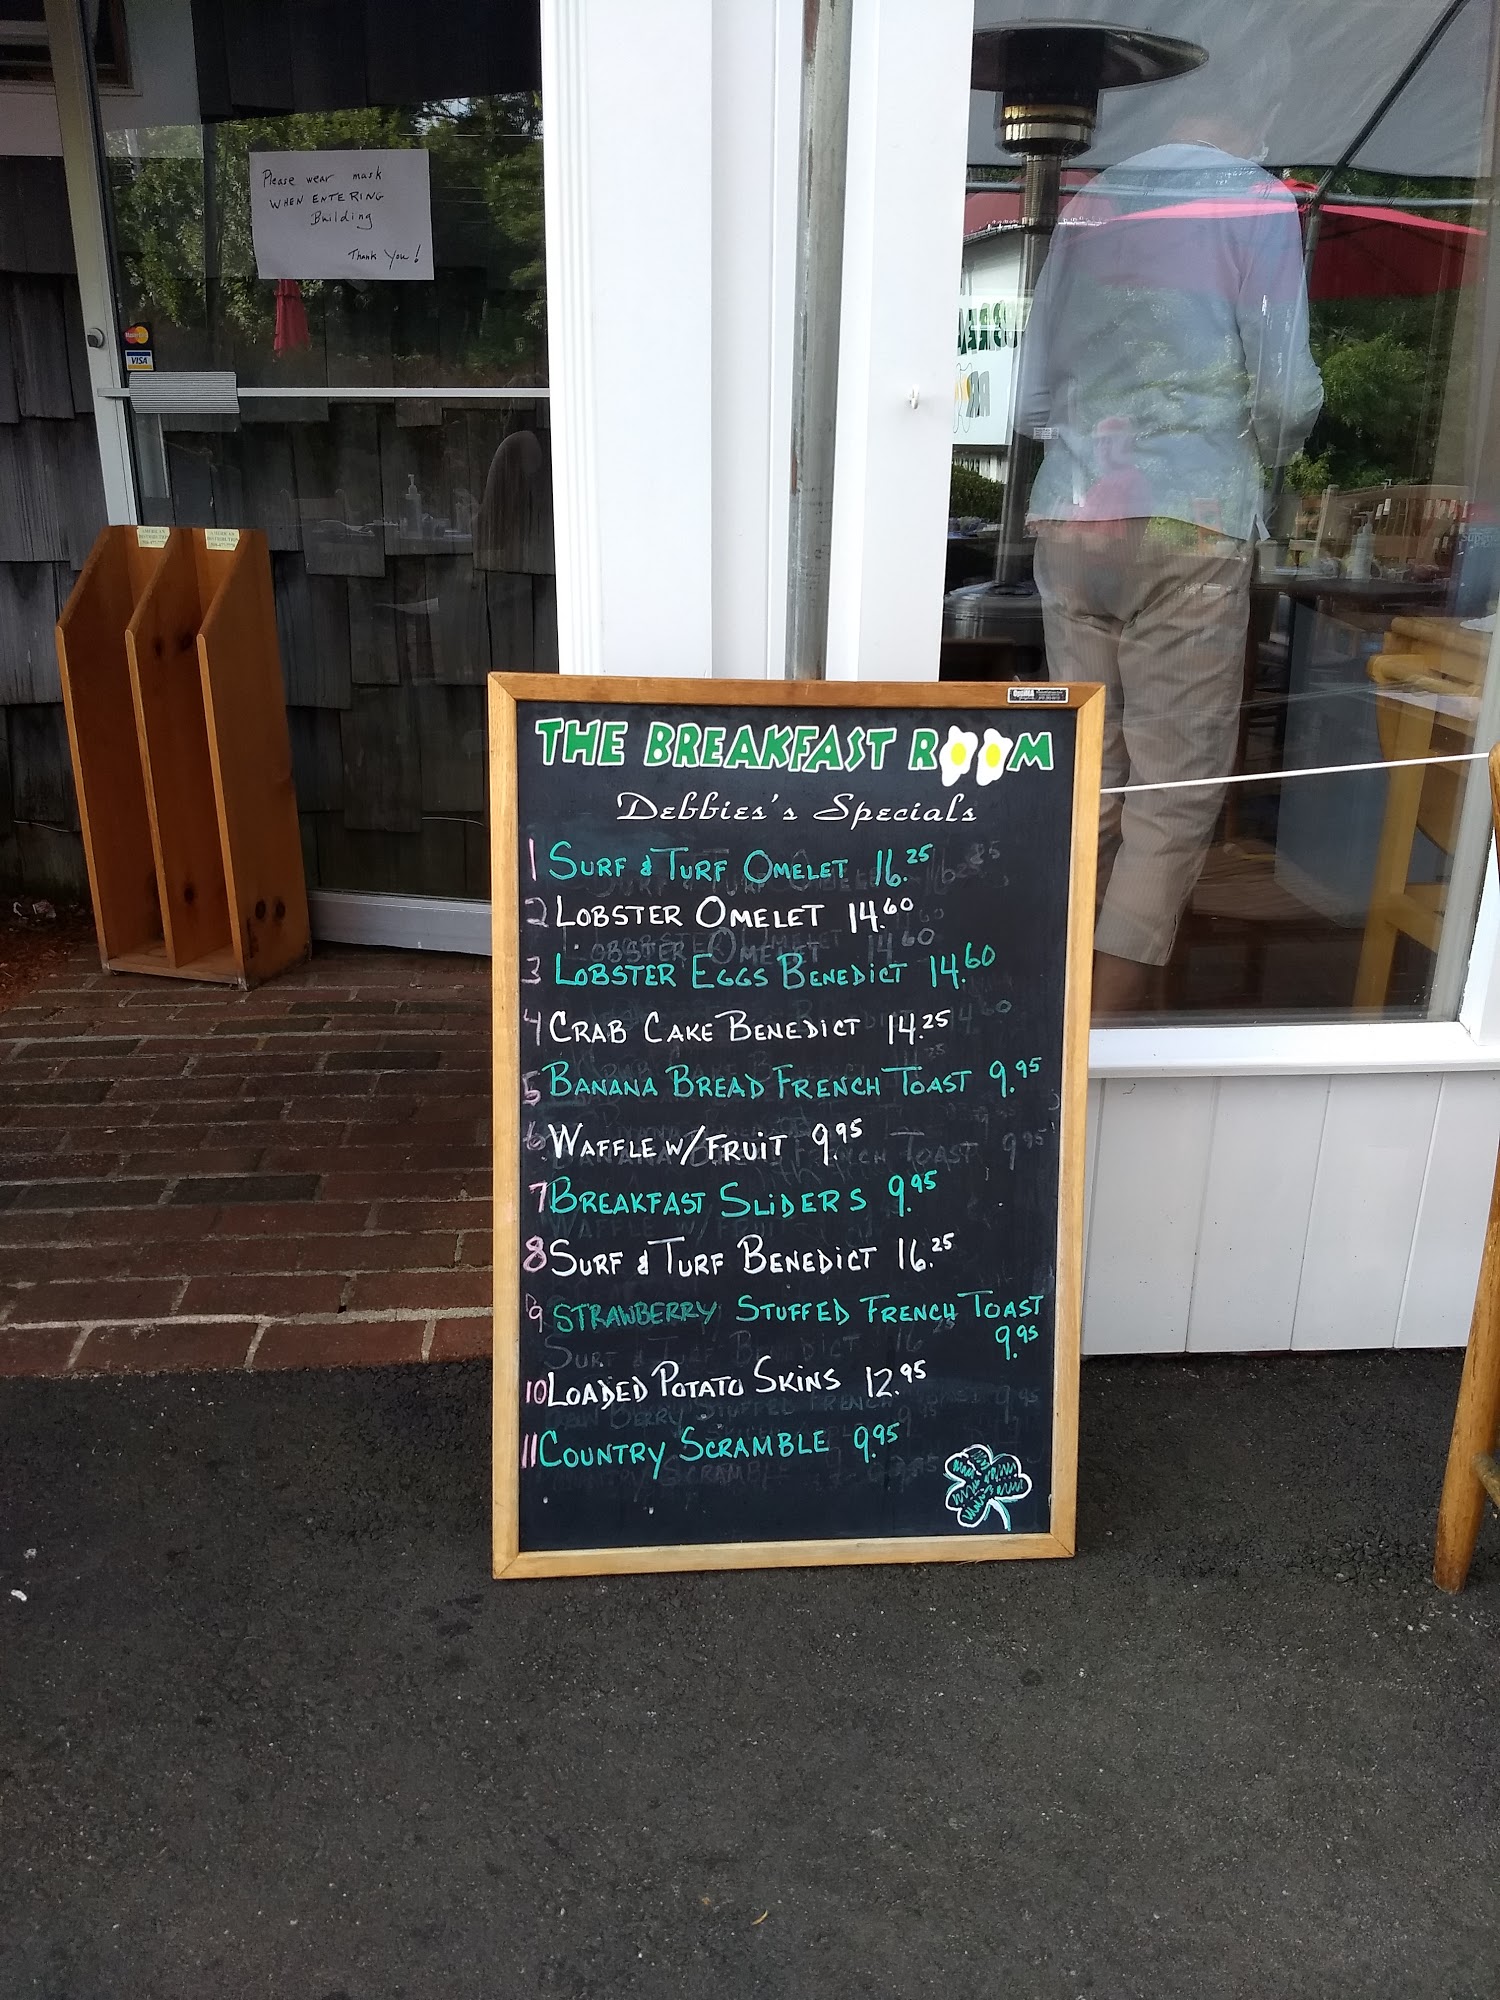 Please wear mask
WHEN ENTERING
Building
Thank You!
MasterCard
VISA
AMERICAN
DISTRIBUTION
THE BREAKFAST ROOM
Debbies's Specials
1 SURF & TURF OMELET 16.25
2 LOBSTER OMELET 14.60
3 LOBSTER EGGS BENEDICT 14.60
4 CRAB CAKE BENEDICT 14.25
5 BANANA BREAD FRENCH TOAST 9.95
6 WAFFLE W/FRUIT 9.95
7 BREAKFAST SLIDERS 9.95
8 SURF & TURF BENEDICT 16.25
9 STRAWBERRY STUFFED FRENCH TOAST
9.95
10 LOADED POTATO SKINS 12.95
11 COUNTRY SCRAMBLE 9.95